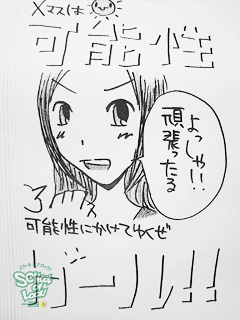 Xマスは
可能性
よっしゃい!!
頑張ったる
可能性にかけてゆくぜ
ガール!!